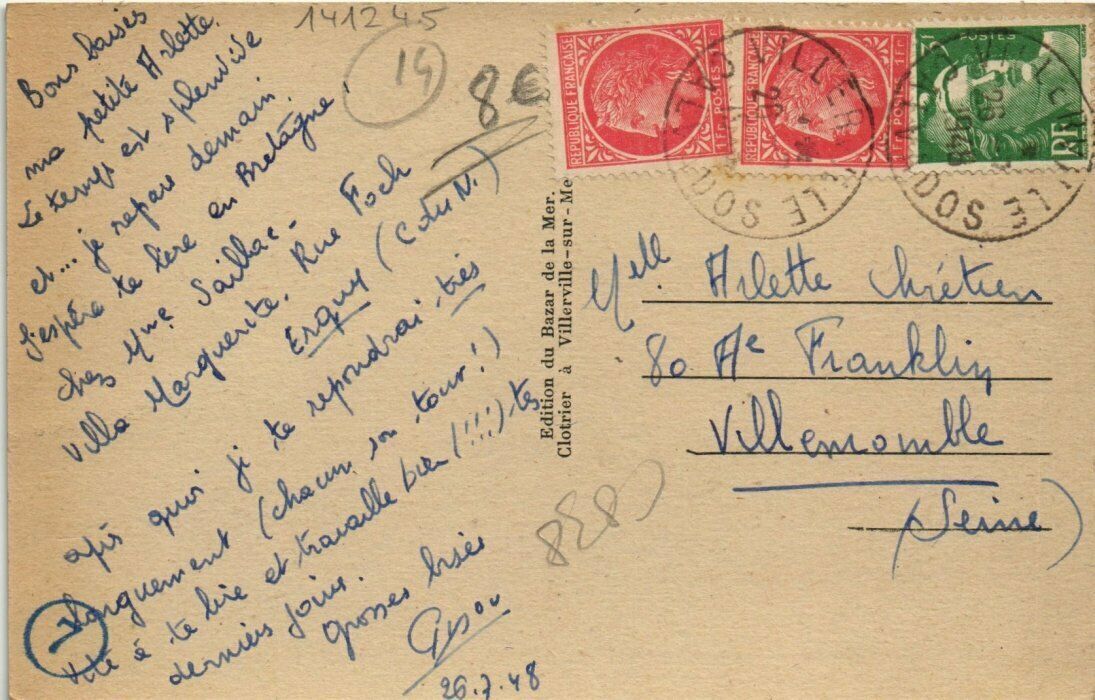 141245
14
8€
Bons baisers
ma petite Arlette.
Le temps est splendide
et... je repars demain.
J'espère te lire en Bretagne,
chez Mme Saillac-
Villa Marguerite. Rue Foch
Erquy (Côtes N.)
après quoi je te repondrai très
longuement (chacun son tour!)
Vite à te lire et travaille bien (!!!!) tes
derniers jours.
Grosses bises
26.7.48
REPUBLIQUE FRANÇAISE
1Fr POSTES
REPUBLIQUE FRANÇAISE
1Fr POSTES
POSTES
RF
VILLERVILLE
CALVADOS
26-7
1948
Edition du Bazar de la Mer.
Clotrier à Villerville-sur-Me
Melle Arlette Chrétien
80 Ae Franklin
Villemomble
(Seine)